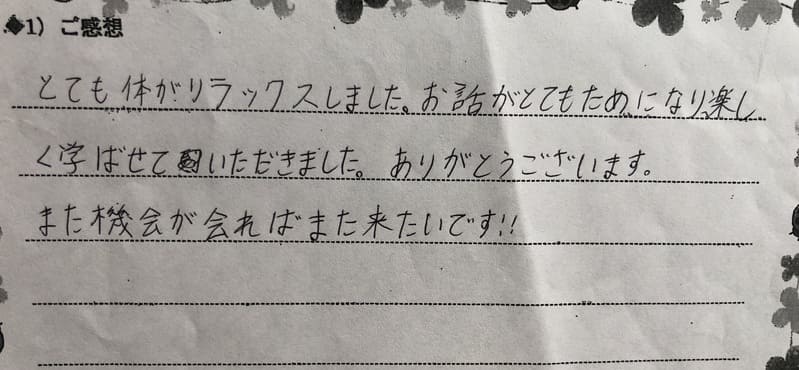 ◆1) ご感想
とても体がリラックスしました。お話がとてもためになり楽し
く学ばせていただきました。ありがとうございます。
また機会が会ればまた来たいです!!